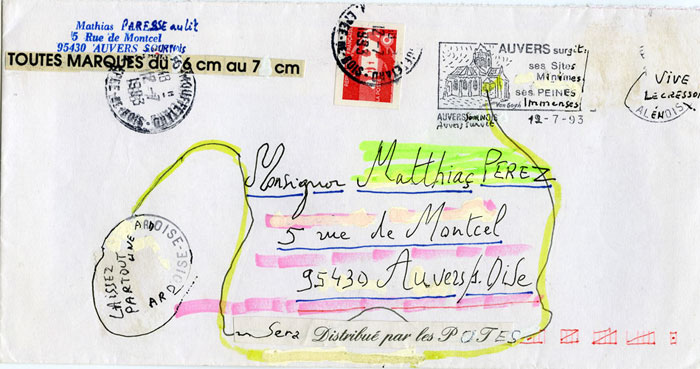 Mathias PARESSE au lit
5 Rue de Montcel
95430 AUVERS SOURNOIS
TOUTES MARQUES du 6 cm au 7 cm
1993
1993
AUVERS surgit
ses Sites
Minimes
ses PEINES
Immenses
Van Gogh
AUVERS SOURNOIS
Auvers survice
12-7-93
VIVE
LE CRESSON
ALENOIS
Monsignor Matthias PEREZ
5 rue de Montcel
95430 Auvers/s. Oise
LAISSEZ
PARTOUT
UNE
ARD
OISE
ARD
OISE
Sera Distribué par les POTES